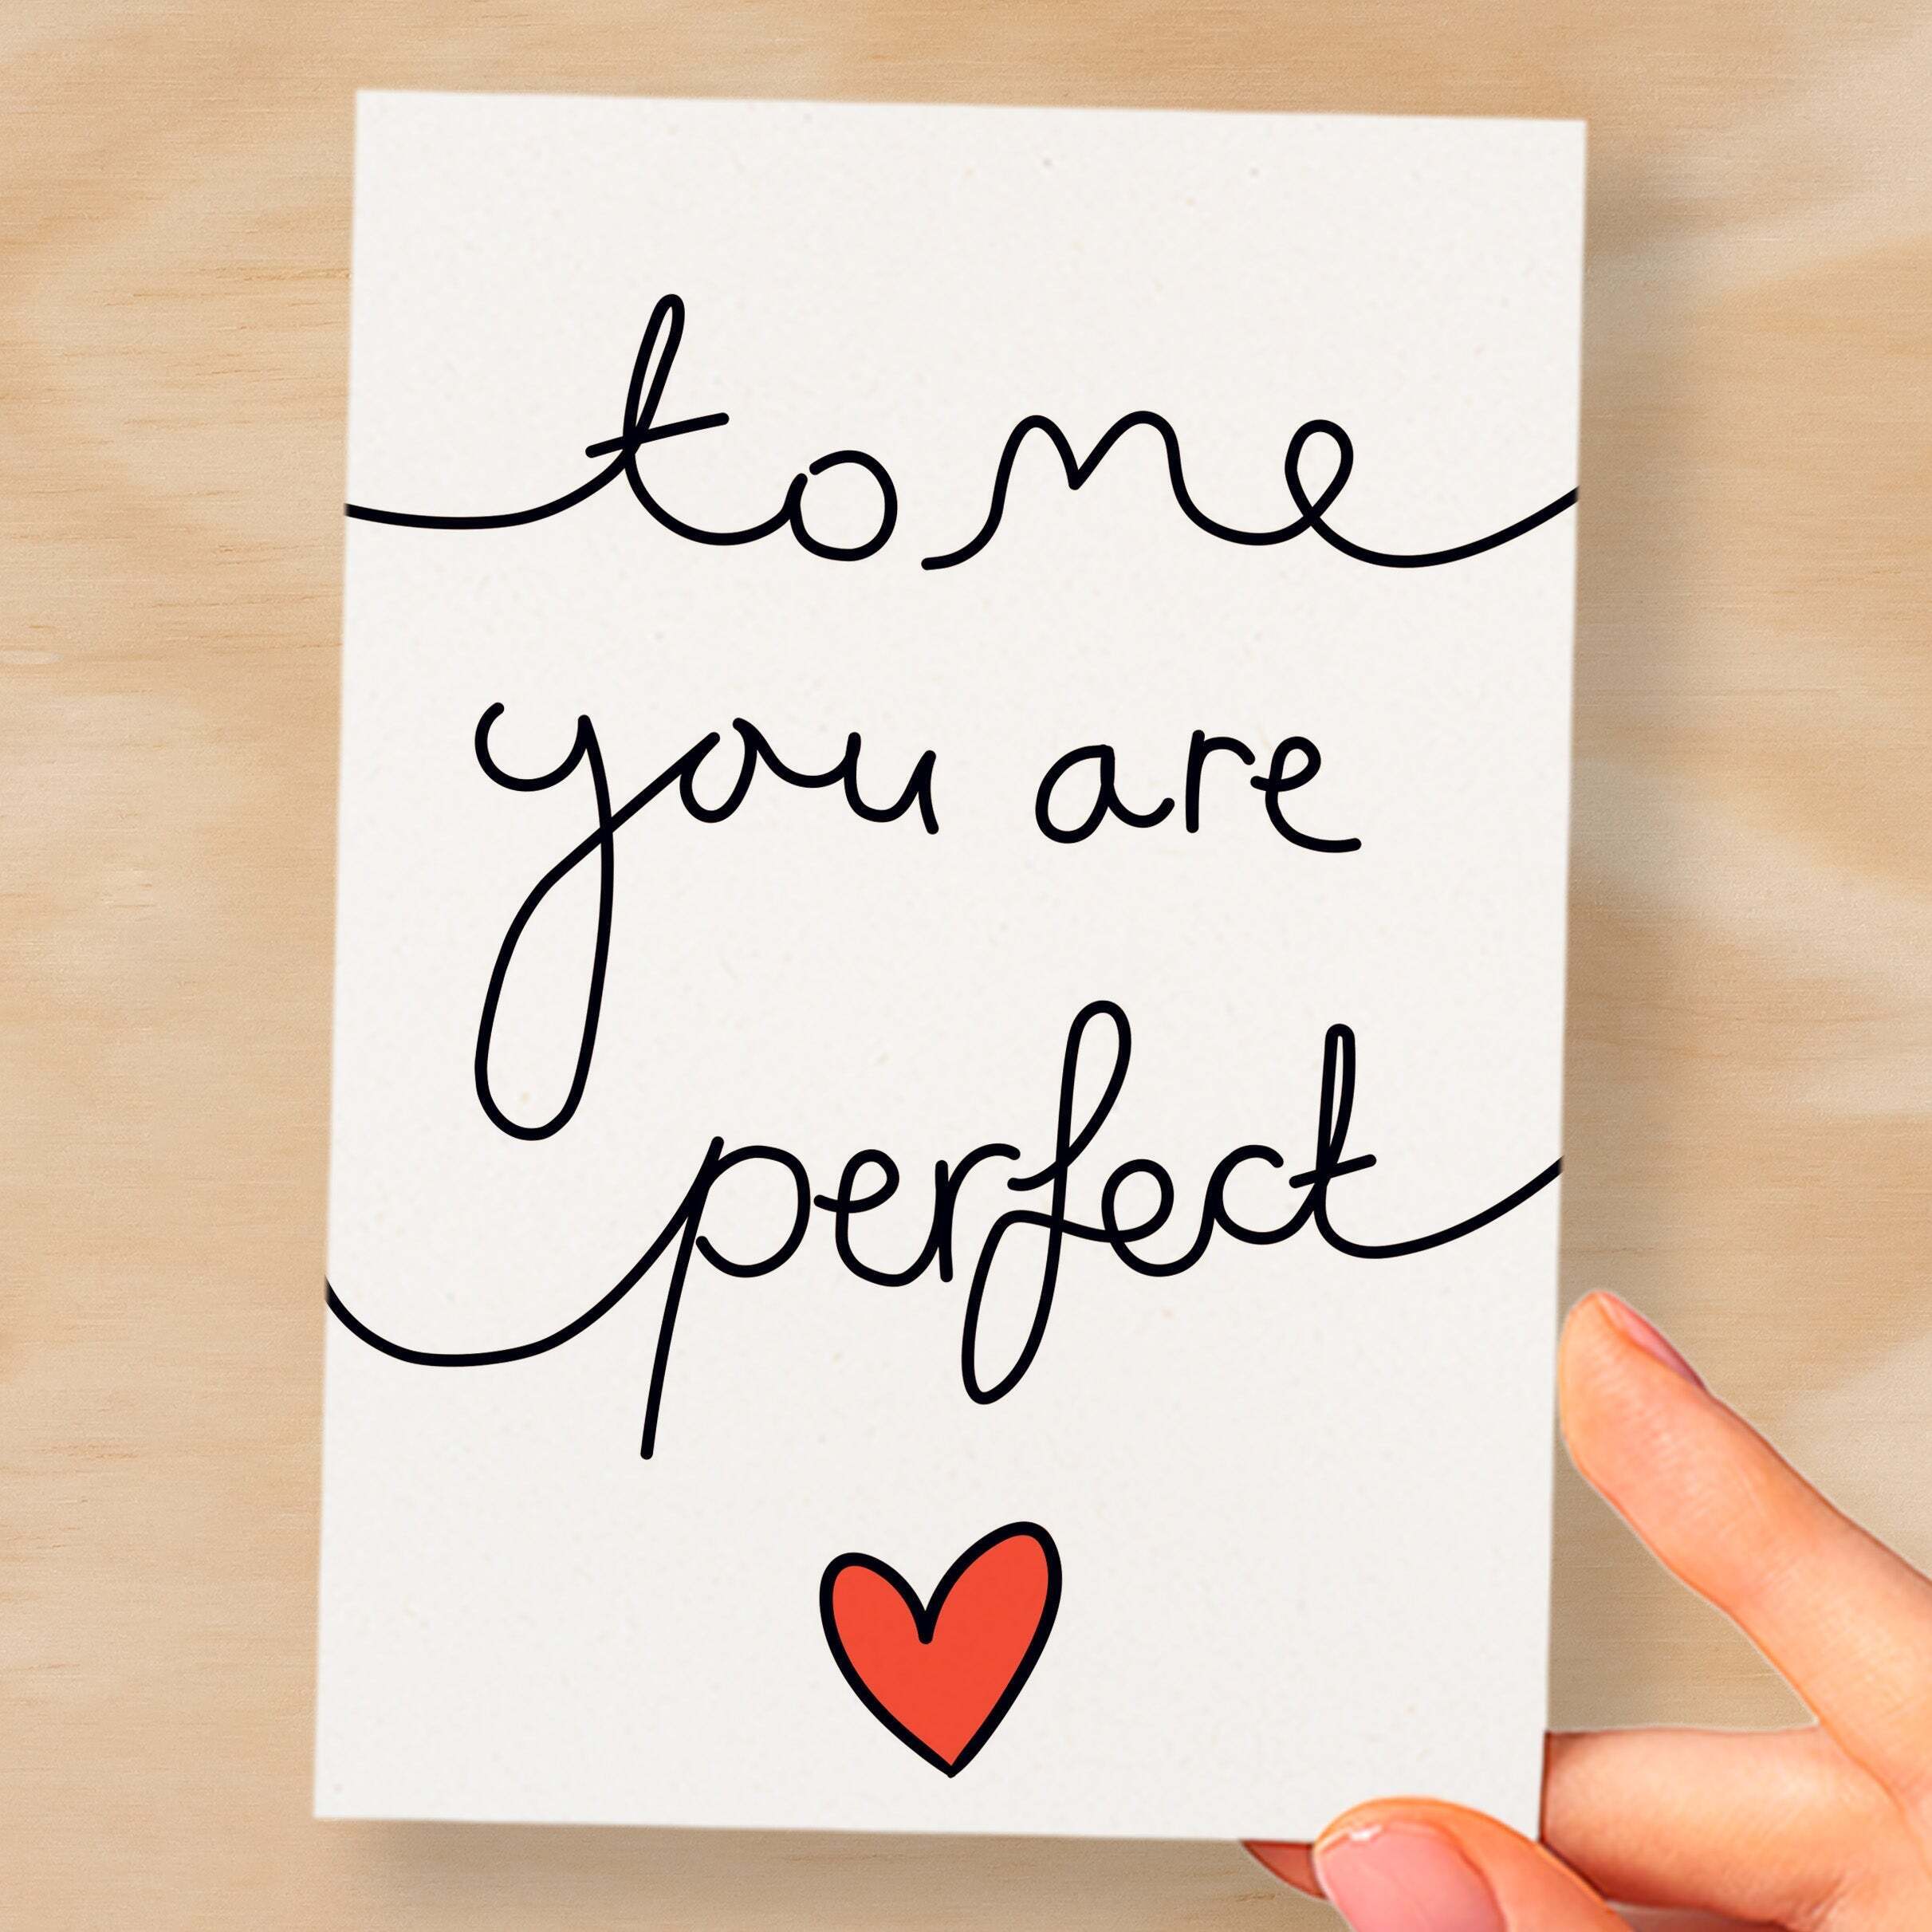 to me
you are
perfect